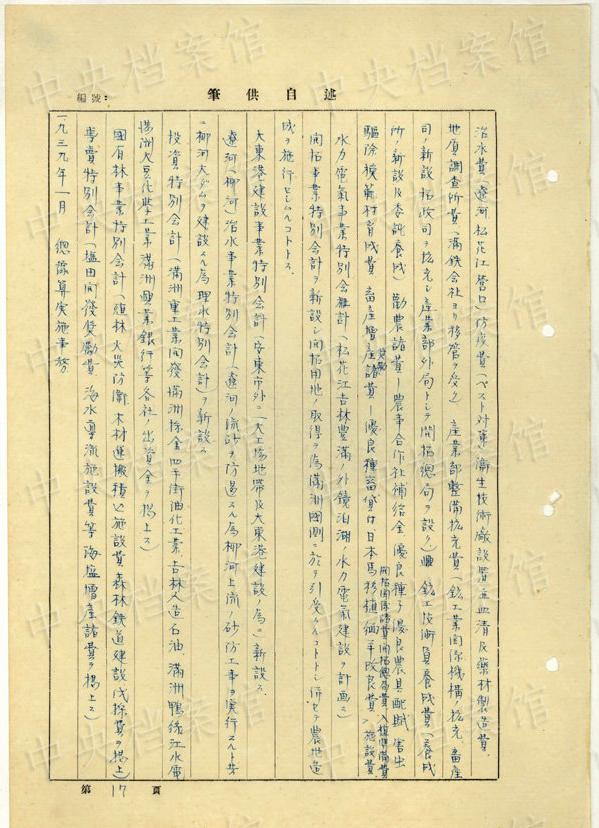 述自供筆
編號：
治水費（遼河松花江営口）防疫費（ペスト対策、衛生技術廠設置並血清及藥材製造費、
地質調査所費（満鉄会社ヨリ移管ヲ受ク）　産業部整備拡充費（鉱工業関係機構ノ拡充　畜産
司ノ新設拓政司ヲ拡充シ産業部外局トシテ開拓総局ヲ設ク）鉱工技術員養成費（養成
所ノ新設及委託養成）勧農諸費ー農事合作社補給金　優良種子　優良農具配賦　害虫
開拓団諸費開拓総局費入植準備費
駆除模範村育成費　畜産増産奨励諸費ー優良種畜貸付日本馬移植緬羊改良費ノ施設費
水力電気事業特別会計（松花江吉林豊満ノ外鏡泊湖ノ水力電気建設ヲ計画ス）
開拓事業特別会計ヲ新設シ開拓用地ノ取得ヲ為満洲国側ニ於テ引受クルコトトシ併セテ農地造
成ヲ施行セシムルコトトス、
大東港建設事業特別会計（安東市外ニ一大工場地帯及大東港建設ノ為ニ）新設ス、
遼河（柳河）治水事業特別会計（遼河ノ流砂ヲ防遏スル為柳河上流ノ砂防工事ヲ実行スルト共
ニ柳河大ダムヲ建設スル為理水特別会計ヲ新設ス
投資特別会計（満洲重工業開発満洲採金四平街油化工業吉林人造石油、満洲鴨緑江水電
満洲大豆化学工業満洲興業銀行等各社ノ出資金ヲ掲上ス）
国有林事業特別会計（植林火災防衛木材運搬積込施設費森林鉄道建設伐採費ヲ掲上）
専賣特別会計（塩田開發奨勵費　海水導流施設費等海塩増産諸費ヲ掲上ス）
一九三九年一月　総豫算実施事務
第17頁
中央档案馆